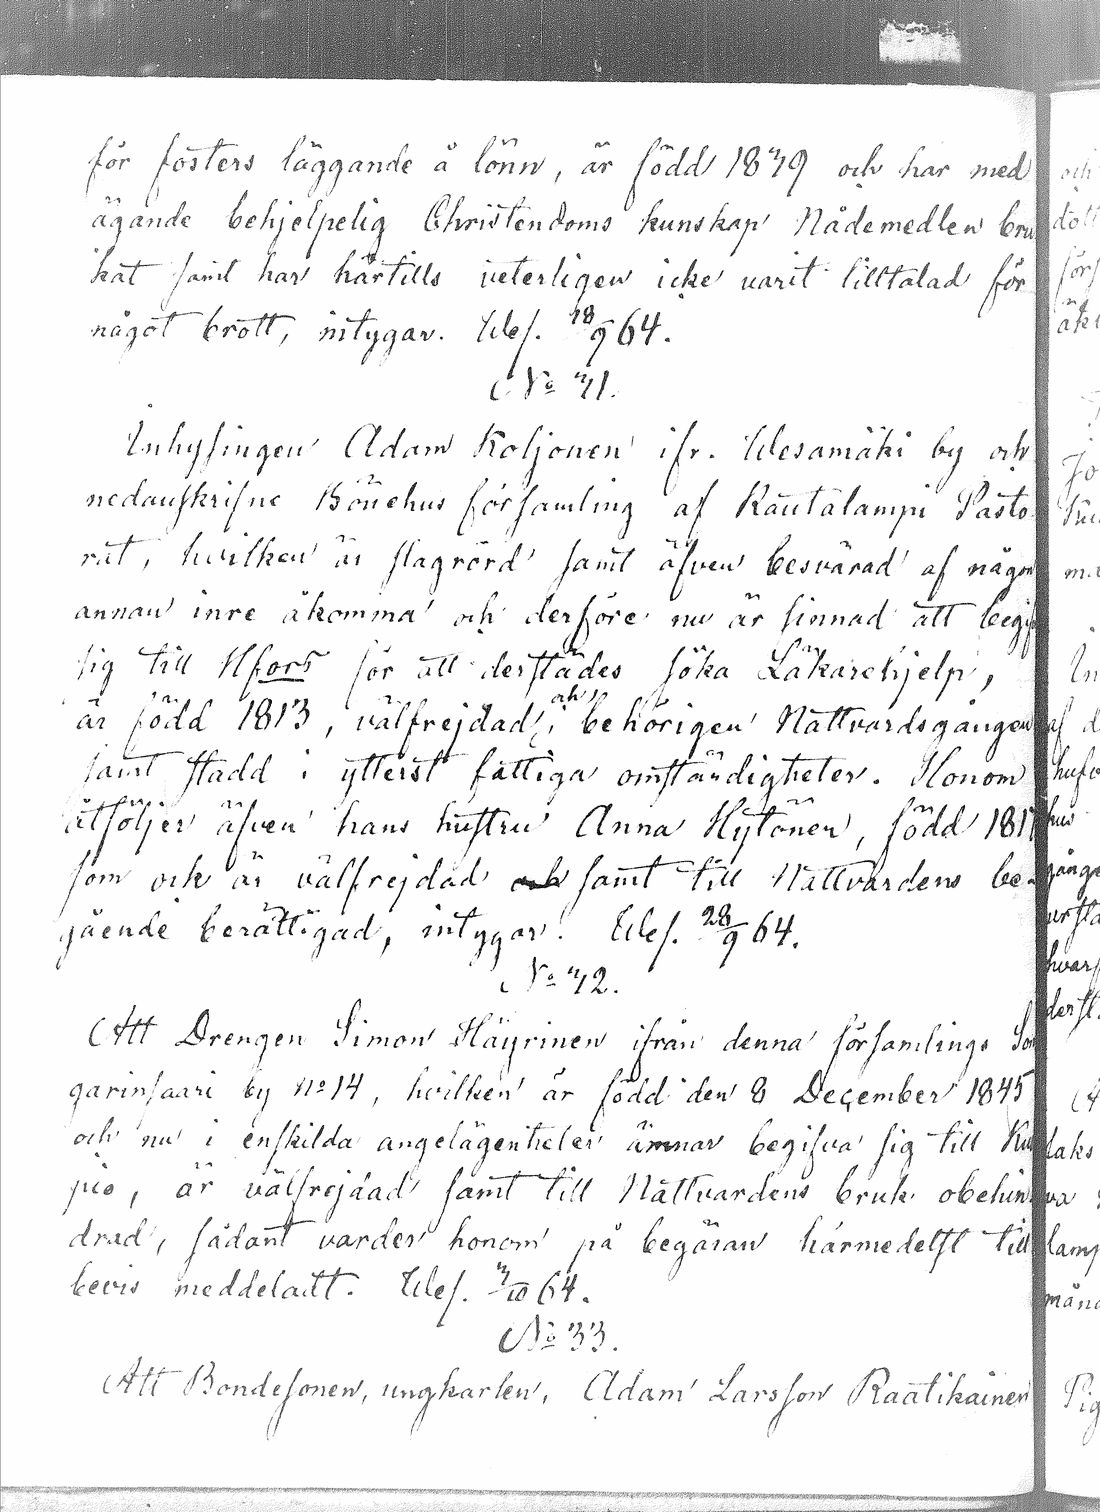 för fosters läggande å lönn, är född 1849 och har med
ägande behjelpelig Christendoms kunskap Nådemedlen bru
kat samt har härtills veterligen icke varit tilltalad för
något brott, intygar. Wes. 18/9 64.
No 41.
Inhysingen Adam Koljonen ifr. Wesamäki by och
nedanskrifne Bönehus församling af Rautalampi Pasto
rat, hvilken är slagrörd samt äfven besvärad af någon
annan inre åkomma och derföre nu är sinnad att begif
sig till Hfors för att derstädes söka Läkarehjelp,
är född 1813, välfrejdad, och behörigen Nattvardsgången
samt stadd i ytterst fattiga omständigheter. Honom
åtföljer äfven hans hustru Anna Hytönen, född 181
som ock är välfrejdad och samt till Nattvardens be-
gående berättigad, intygar. Wes. 28/9 64.
No 42.
Att Drengen Simon Häyrinen ifrån denna församlings Son
garinsaari by No 14, hvilken är född den 8 December 1845
och nu i enskilda angelägenheter ämnar begifva sig till Ku
pio, är välfrejdad samt till Nattvardens bruk obehin
drad, sådant varder honom på begäran härmedelst till
bevis meddeladt. Wes. 4/10 64.
No 33.
Att Bondesonen, ungkarlen, Adam Larsson Raatikainen